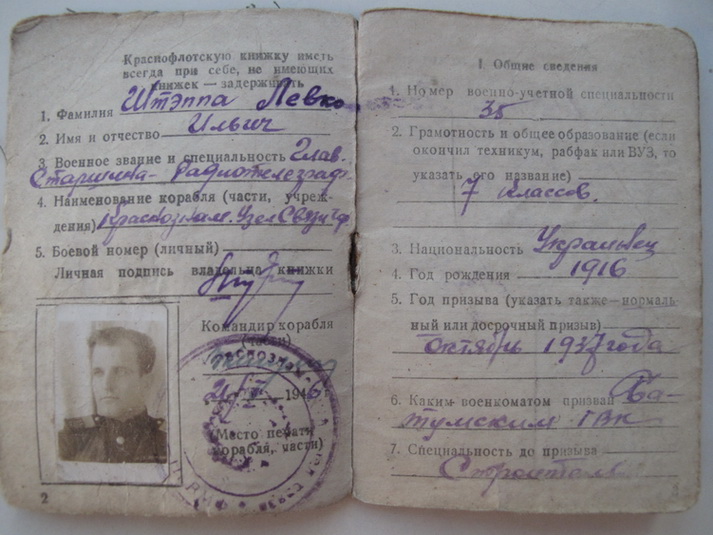 Краснофлотскую книжку иметь
всегда при себе, не имеющих
книжек — задерживать
1. Фамилия Штэппа Левко
2. Имя и отчество Ильич
3. Военное звание и специальность Глав.
Старшина - радиотелеграф.
4. Наименование корабля (части, учреж-
дения) Краснознам. Узел Связи
5. Боевой номер (личный)
Личная подпись владельца книжки
Командир корабля
(части)
194
(Место печати
корабля, части)
2
I. Общие сведения
1. Номер военно-учетной специальности
35
2. Грамотность и общее образование (если
окончил техникум, рабфак или ВУЗ, то
указать его название)
7 классов.
3. Национальность Украинец
4. Год рождения 1916
5. Год призыва (указать также—нормаль-
ный или досрочный призыв)
октябрь 1937 года
6. Каким военкоматом призван Ба-
тумским ГВК
7. Специальность до призыва
Строитель
3